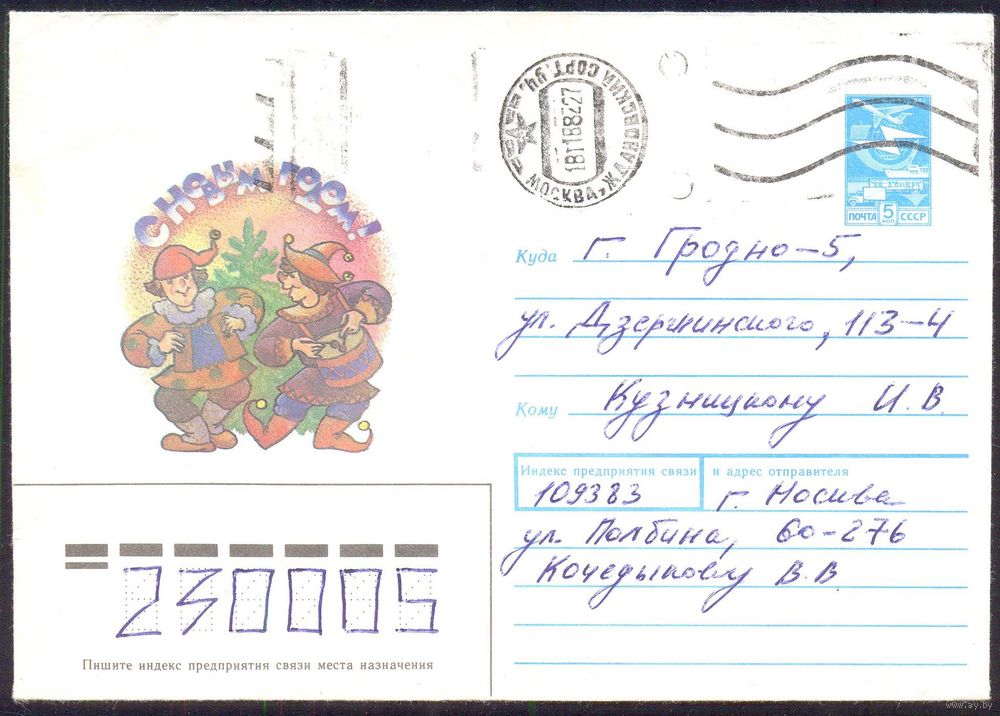 С НОВЫМ ГОДОМ!
МОСКВА, ЖДАНОВСКИЙ СОРТ. УЧ.
ПОЧТА 5 КОП СССР
Куда г. Гродно-5,
ул. Дзержинского, 113-4
Кому Кузницкому И. В.
Индекс предприятия связи и адрес отправителя
109383 г. Москва
ул. Полбина, 60-276
Кочедыкову В. В
230005
Пишите индекс предприятия связи места назначения
www.ay.by